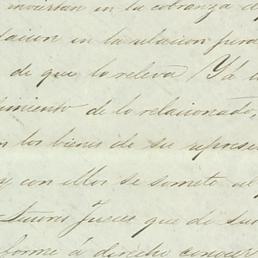 inviertan en la cobranza d
lacion en la relacion jura
de que lo releva. Y á l
limiento de lo relacionado,
n los bienes de su represe
y con ellos se somete al
Jueces que de su
forme á derecho conocer